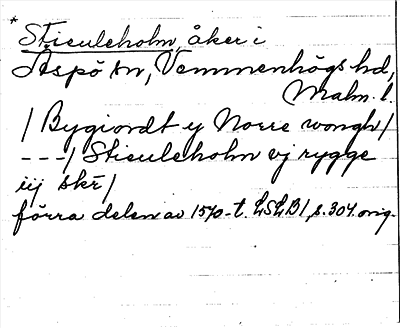 * Stieuleholm, åker i
Äspö sn, Vemmenhögs hd,
Malm. l.
/ Bygiordt y Norre wongh /
---/ Stieuleholm vj rygge
iij skr̄ /
förra delen av 1570-t. LSLB1, s. 304. orig.